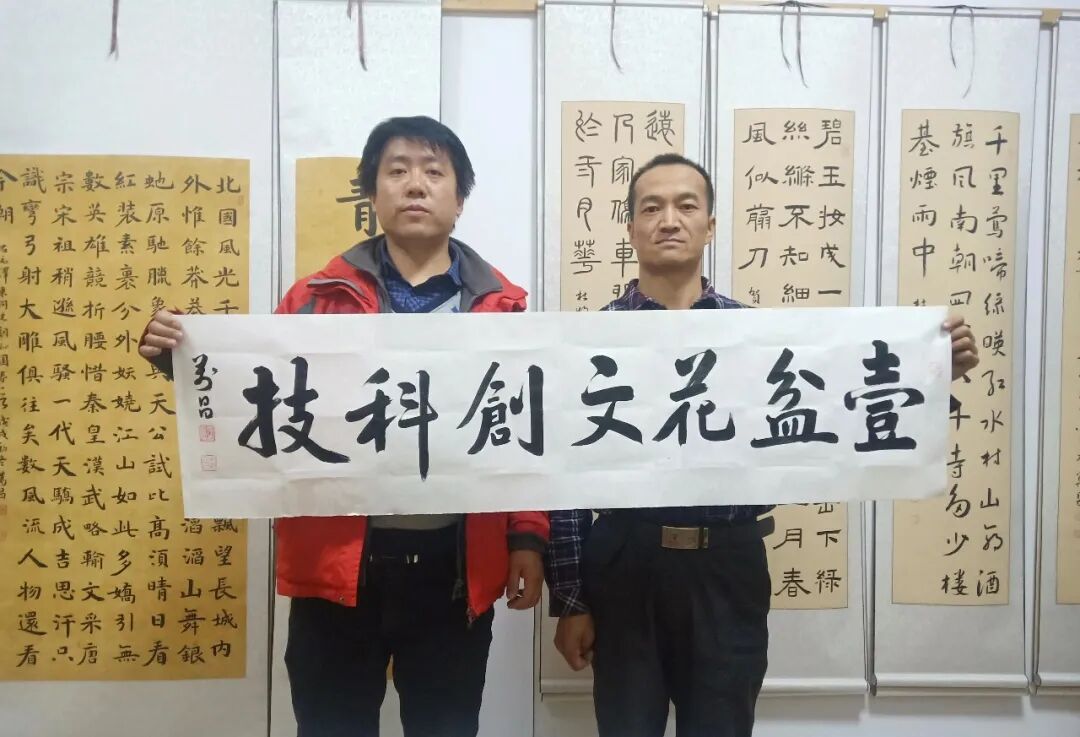 壹盆花文創科技
萬昌
北國風光千 飄望長城內
外惟餘莽莽 滔滔山舞銀
虵原馳臘象 與天公試比高須晴日看
紅裝素裹分外妖嬈江山如此多嬌引無
數英雄競折腰惜秦皇漢武略輸文采唐
宗宋祖稍遜風騷一代天驕成吉思汗只
識彎弓射大雕俱往矣數風流人物還看
今朝
遠
家 車
於 月華
碧玉妝成一 下綠
絲絛不知細 月春
風似剪刀 賀
千里鶯啼綠暎紅水村山郭酒
旗風南朝四 十寺多少樓
臺煙雨中